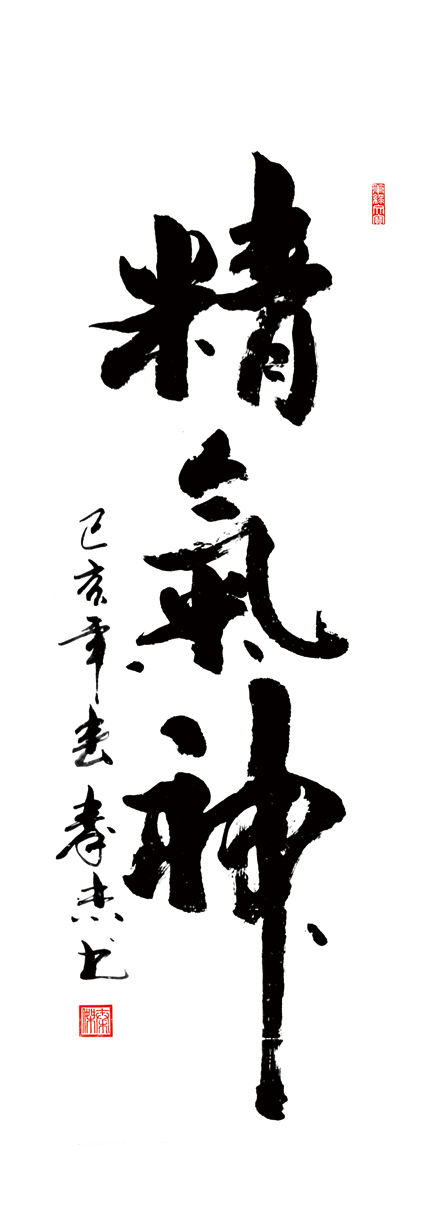 精氣神
己亥年春秦杰书